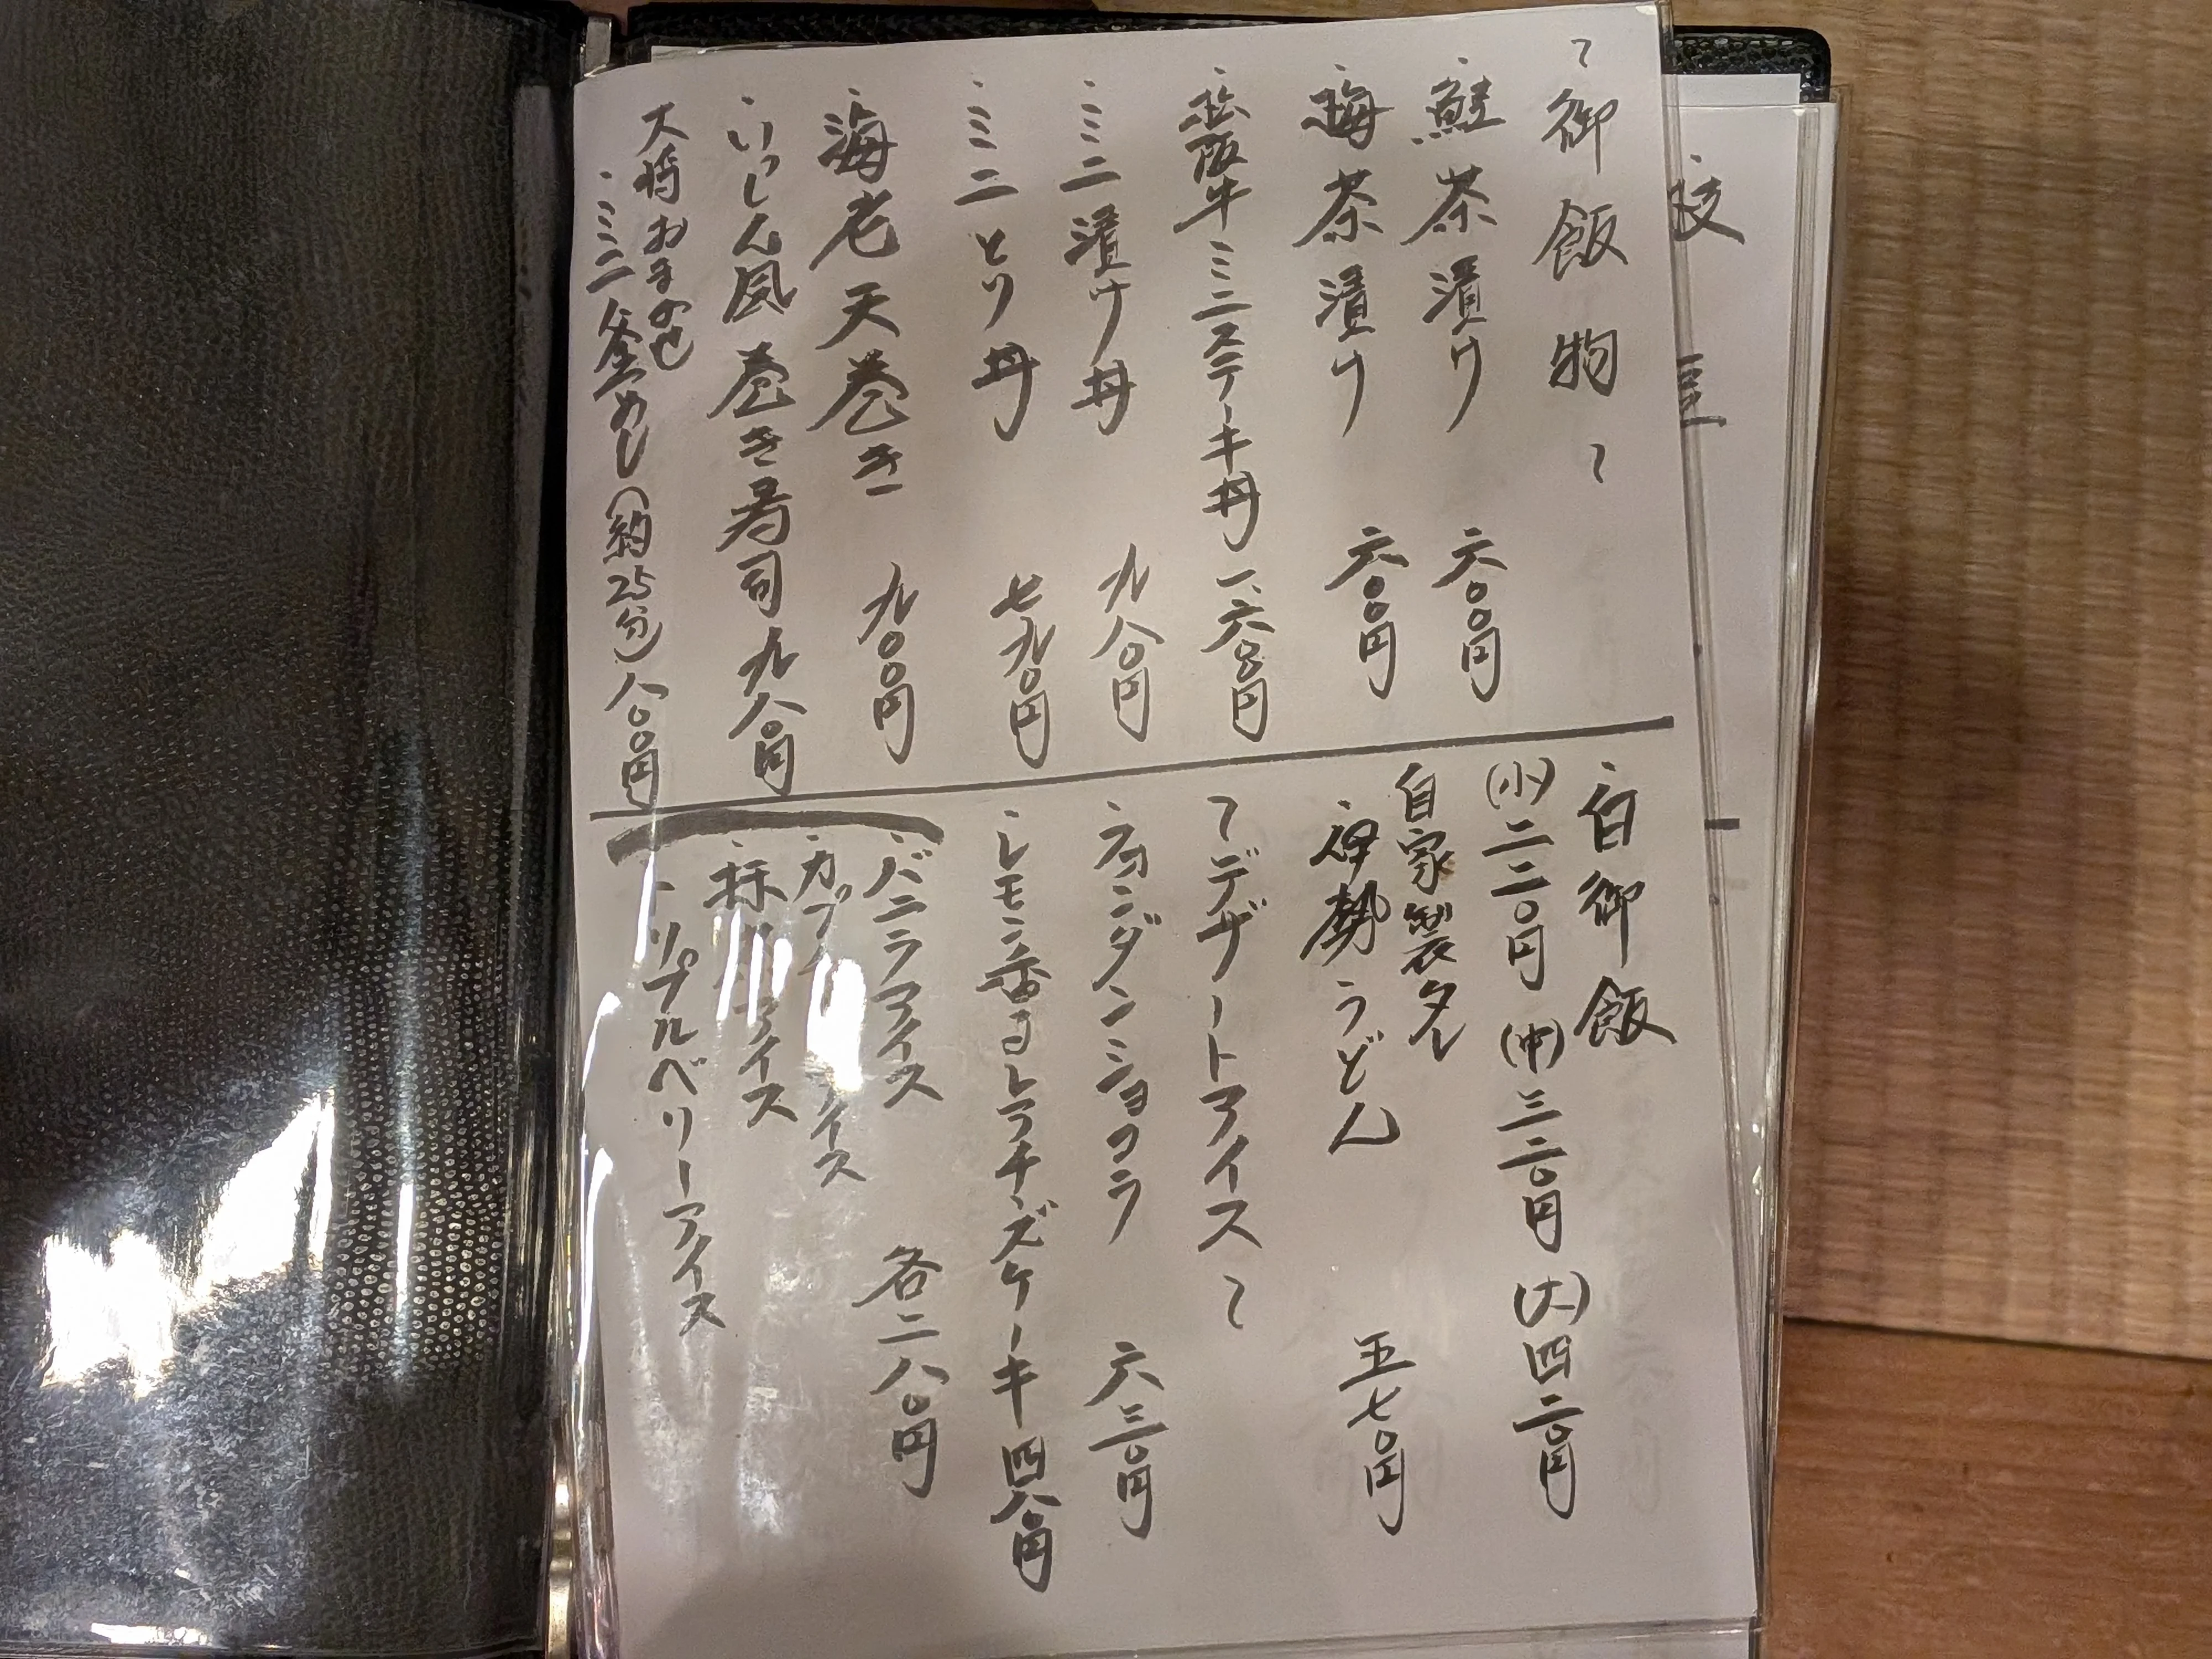 〜御飯物〜
・鮭茶漬け 六〇〇円
・梅茶漬け 六〇〇円
・松阪牛ミニステーキ丼 一、六〇〇円
・ミニ漬け丼 九八〇円
・ミニとり丼 七九〇円
・海老天巻き 九〇〇円
・いっしん風巻き寿司 九八〇円
大将おまかせ
・ミニ釜めし(約25分) 八〇〇円
・白御飯
(小)二二〇円 (中)三二〇円 (大)四二〇円
自家製タレ
・伊勢うどん 五七〇円
〜デザートアイス〜
・フォンダンショコラ 六三〇円
・レモン香るレアチーズケーキ 四八〇円
・バニラアイス 各二八〇円
・カプ イス
・抹 アイス
・トリプルベリーアイス